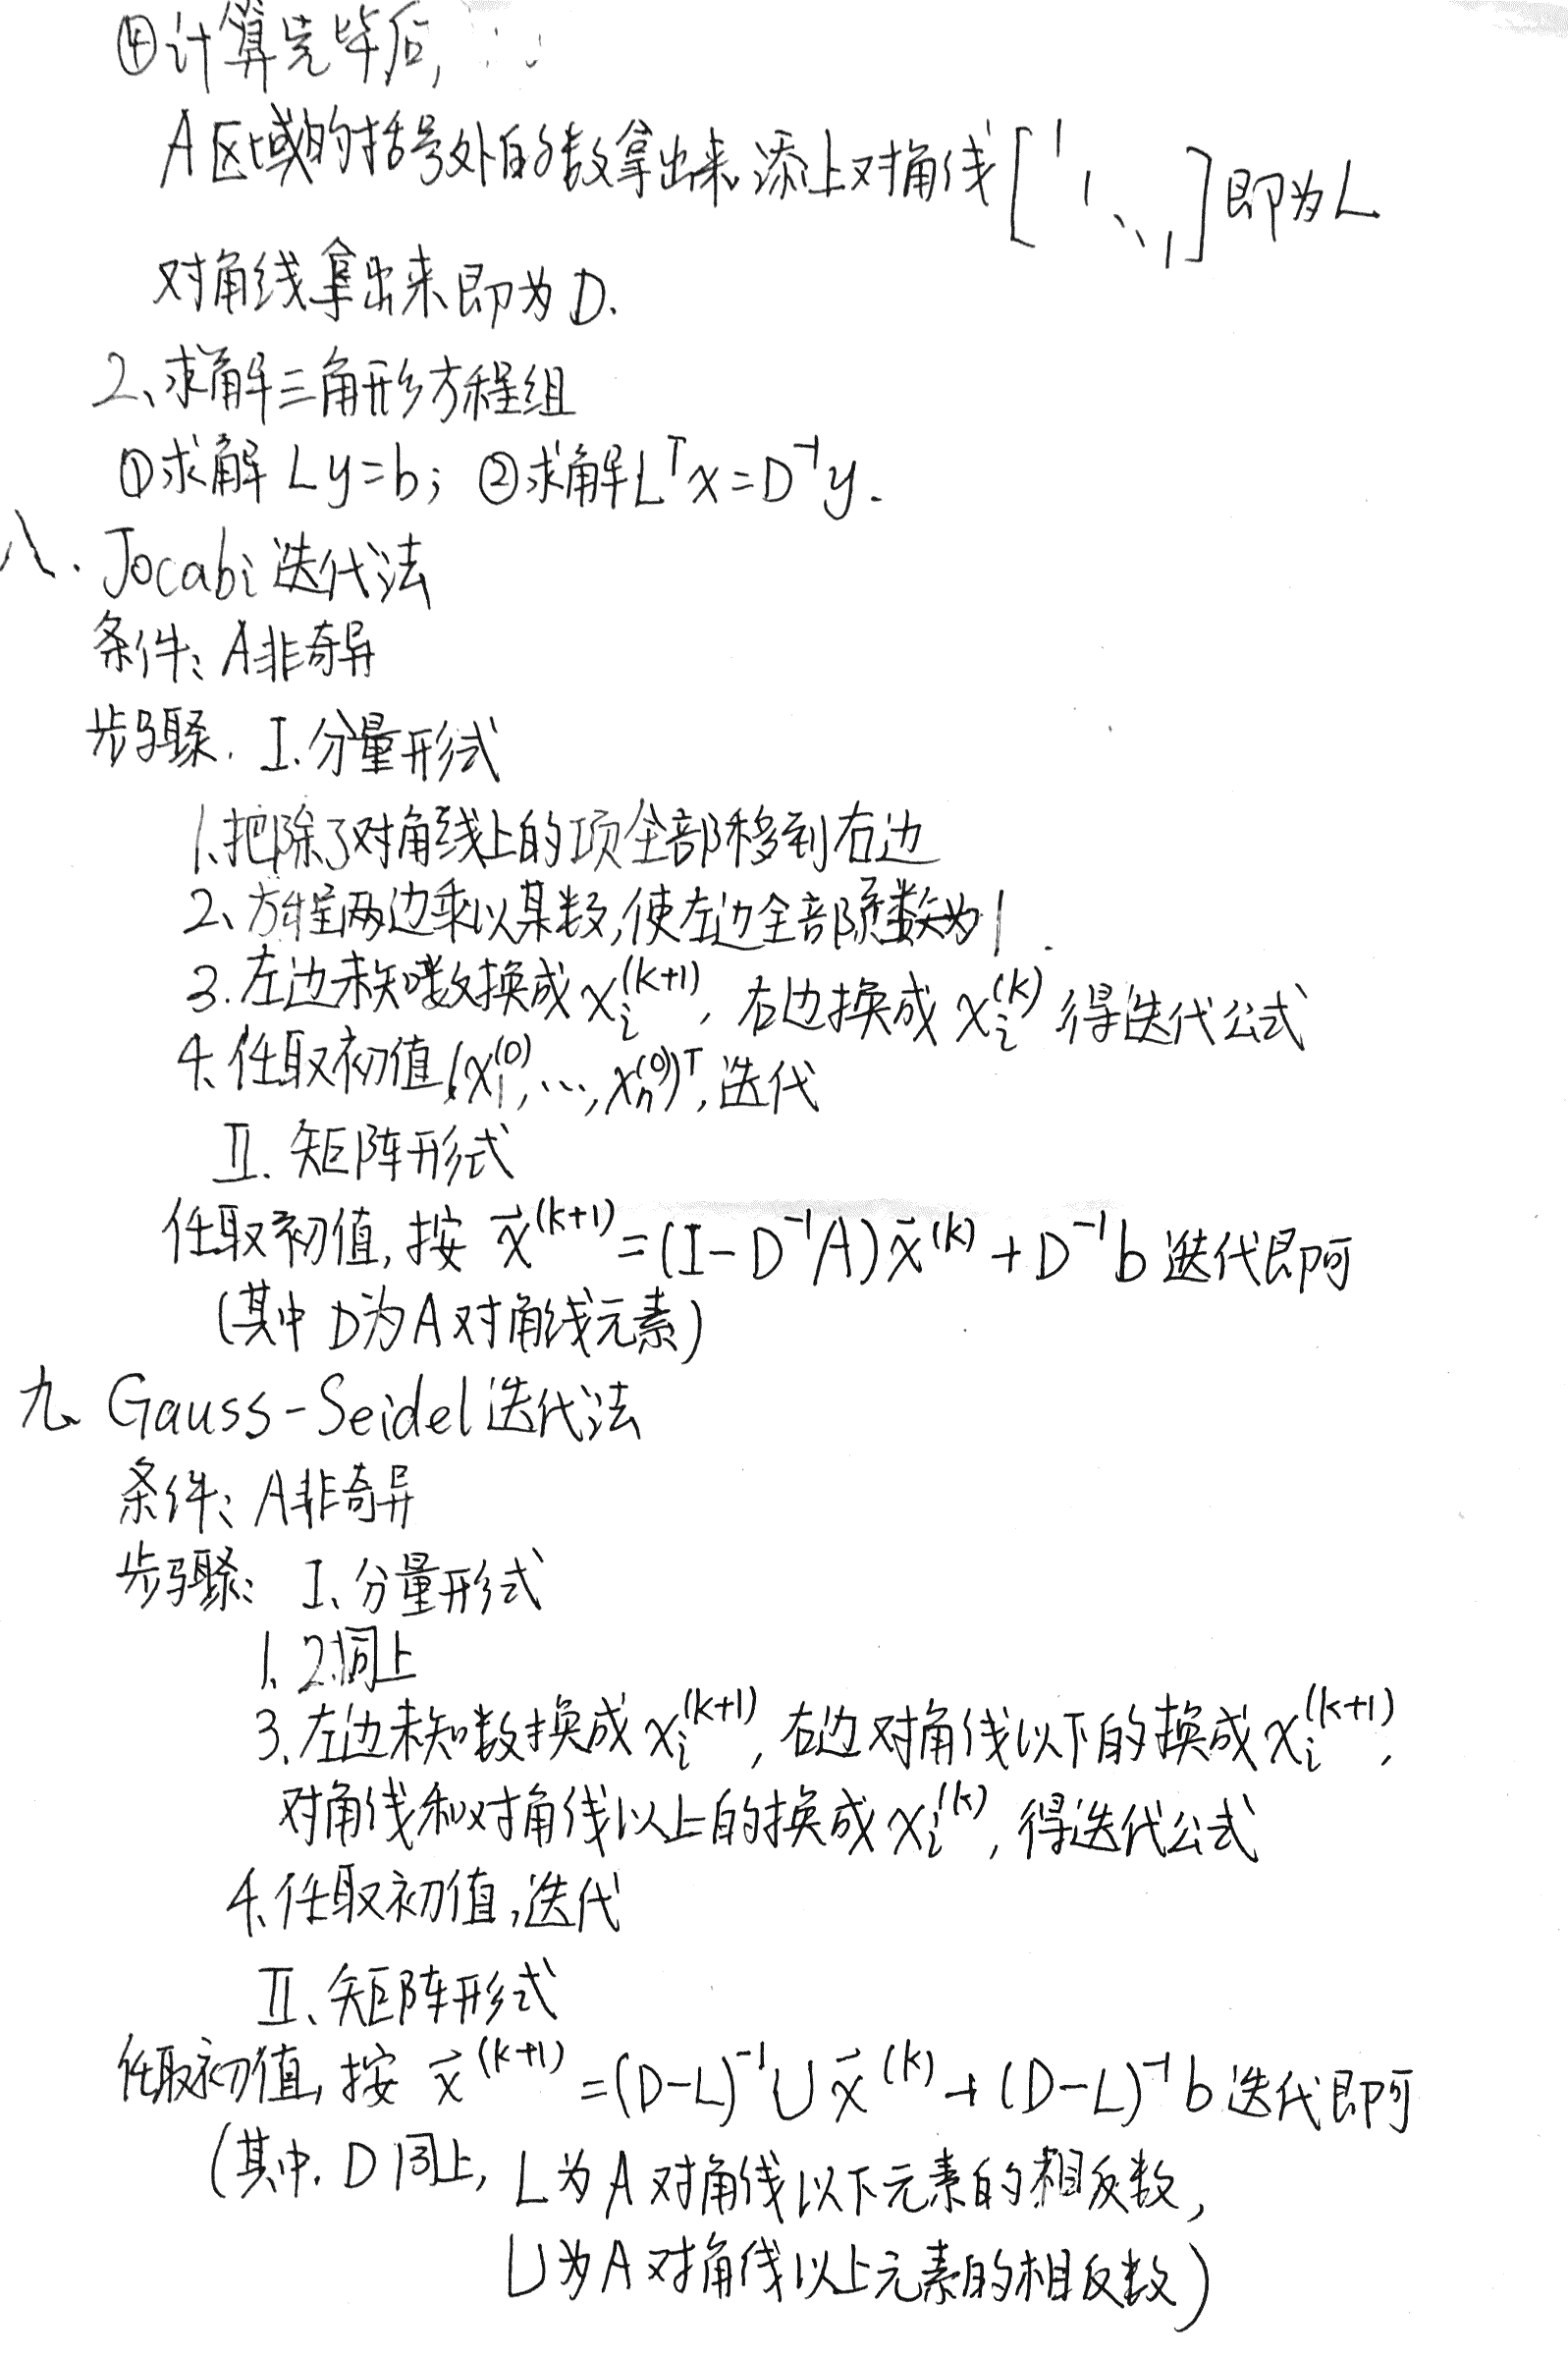 ④计算完毕后,
A区域的括号外的数拿出来,添上对角线[1 1 ⋱ 1]即为L
对角线拿出来即为D.
2、求解三角形方程组
①求解 Ly=b; ②求解L^T x=D^{-1}y.
八. Jocabi迭代法
条件: A非奇异
步骤. I.分量形式
1.把除了对角线上的项全部移到右边
2、方程两边乘以某数,使左边全部系数为1.
3.左边未知数换成x_i^{(k+1)}, 右边换成x_i^{(k)}得迭代公式
4.任取初值(x_1^{(0)},…,x_n^{(0)})^T,迭代
II. 矩阵形式
任取初值,按 x⃗^{(k+1)}=(I-D^{-1}A)x⃗^{(k)}+D^{-1}b 迭代即可
(其中D为A对角线元素)
九、Gauss-Seidel迭代法
条件: A非奇异
步骤: I、分量形式
1、2.同上
3.左边未知数换成x_i^{(k+1)},右边对角线以下的换成x_i^{(k+1)},
对角线和对角线以上的换成x_i^{(k)},得迭代公式
4.任取初值,迭代
II、矩阵形式
任取初值,按 x⃗^{(k+1)}=(D-L)^{-1}Ux⃗^{(k)}+(D-L)^{-1}b迭代即可
(其中. D同上, L为A对角线以下元素的相反数,
U为A对角线以上元素的相反数)